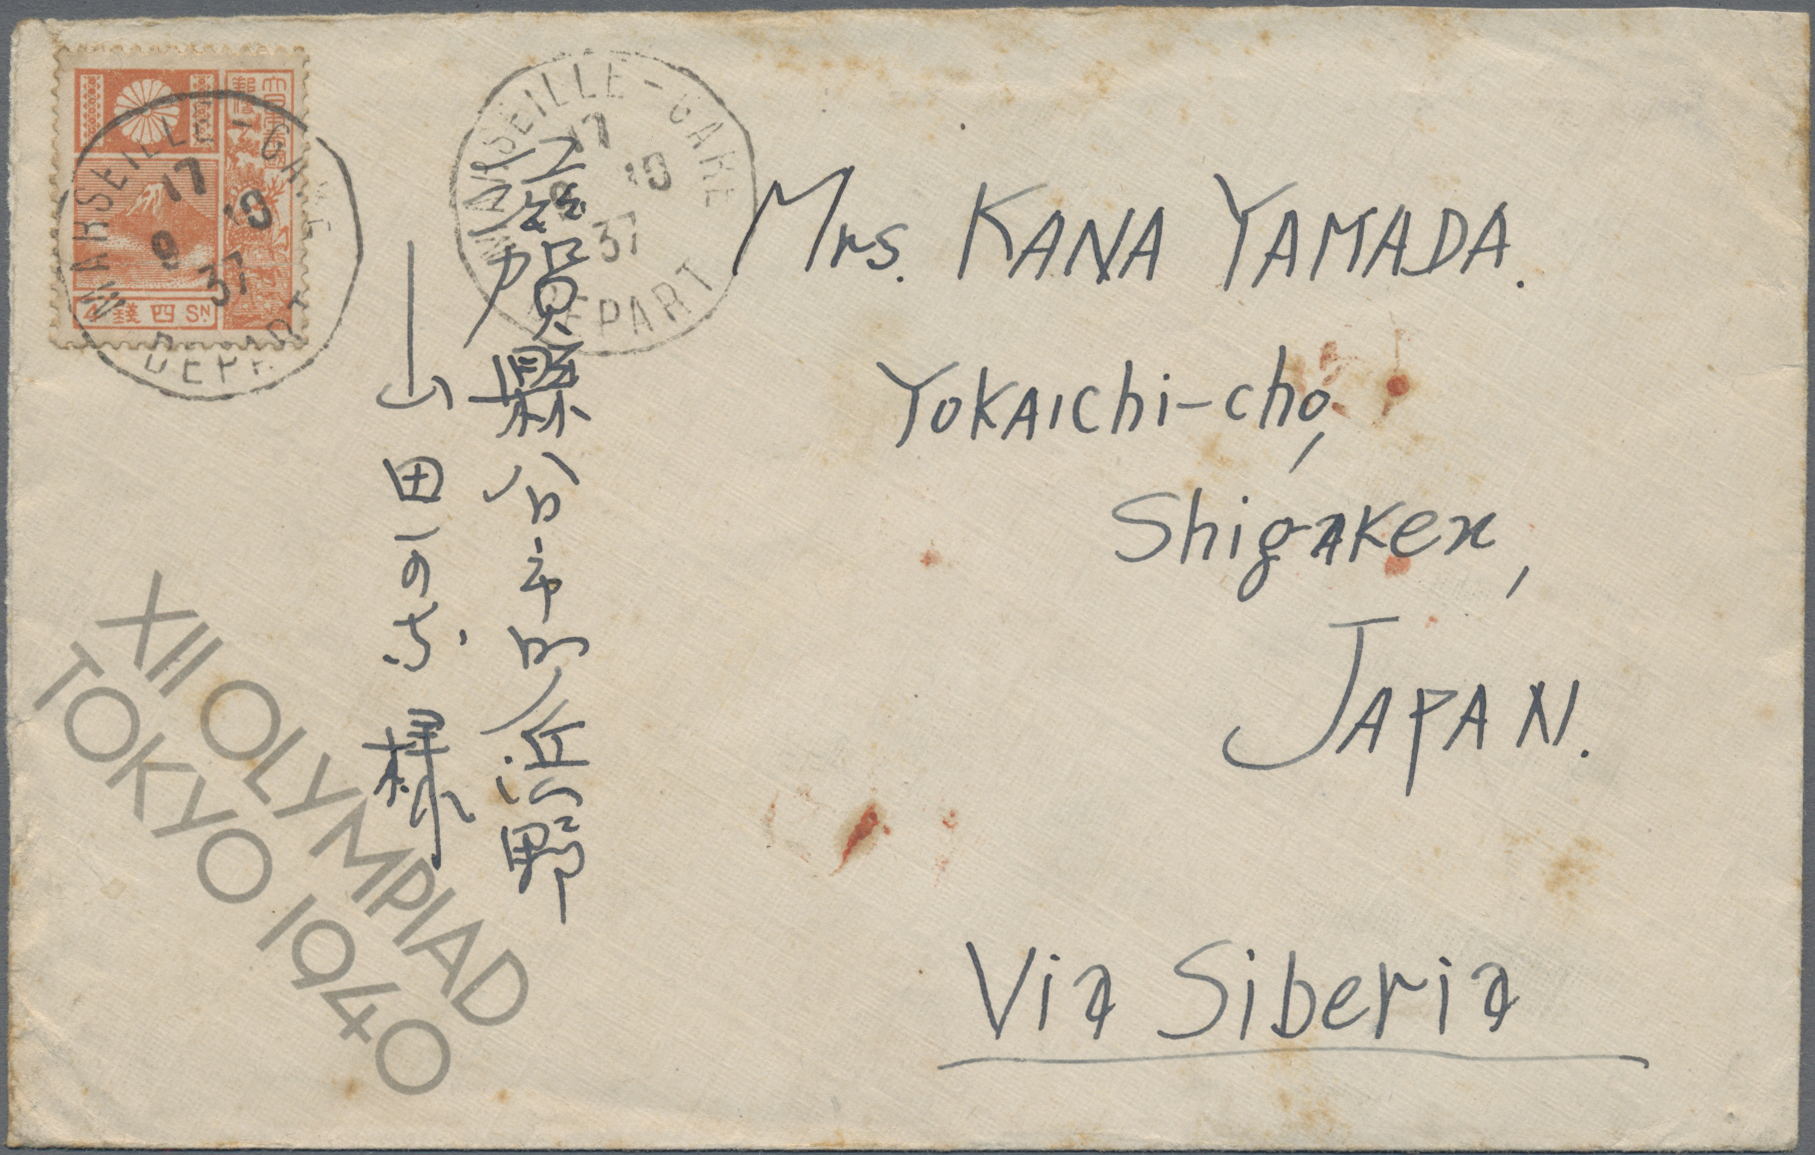 MARSEILLE-GARE
17
9 19
37
DEPART
MARSEILLE-GARE
17
9 19
37
DEPART
4 錢四 SN
Mrs. KANA YAMADA.
Yokaichi-cho,
Shigaken,
JAPAN.
Via Siberia
滋賀縣八日市町浜野
山田かな様
XII OLYMPIAD
TOKYO 1940